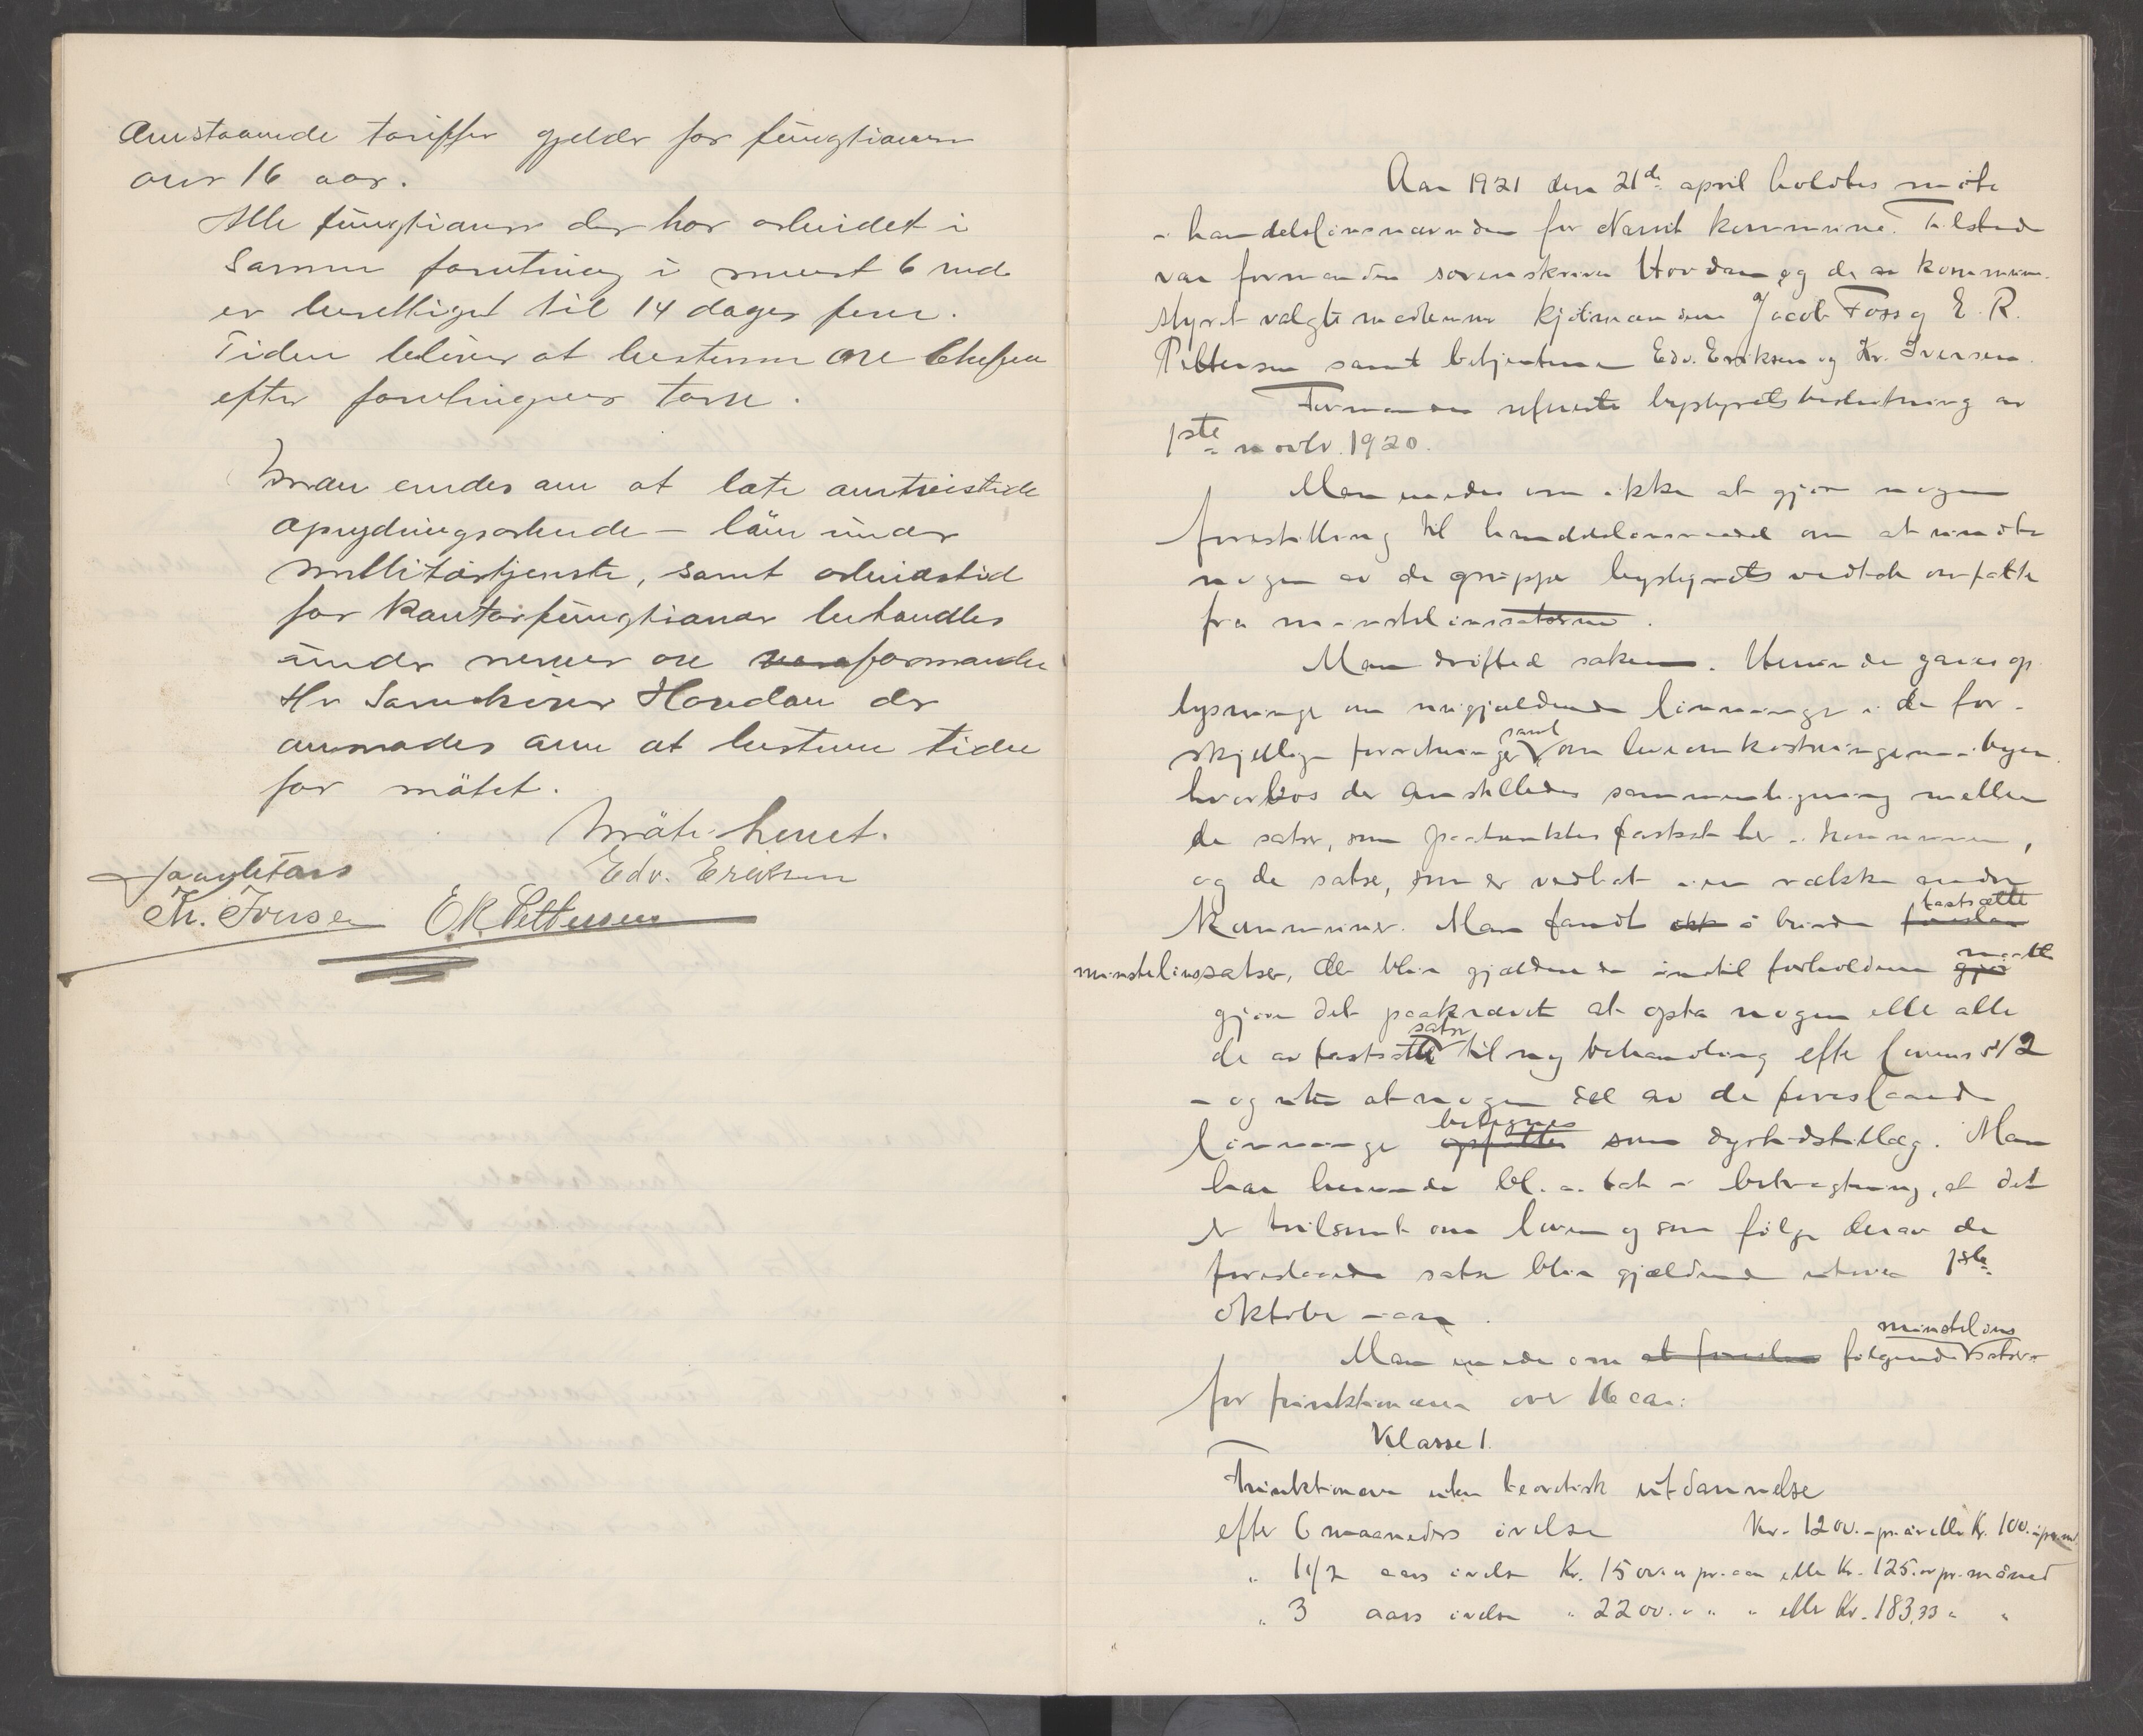 Anstaaende tariffer gjelder for fungtionærer
over 16 aar.
Alle fungtionærer der har arbeidet i
samme forretning i minst 6 md.
er berettiget til 14 dages ferie.
Tiden bliver at bestemme ave Chefen
efter forretningens tarv.
Man enedes om at late
oprydningsarbeide – løn under
millitærtjenste, samt arbeidstid
for kontorfungtionær behandles
under nerver ave formanden
Hr Sorenskriver Hovdan der
anmodes om at bestemme tiden
for møtet.
Møte hevet.
Edv. Eriksen
Kr. Iversen E R Pettersen
Aar 1921 den 21de april holdtes møte
i handelslønsnævnden for Narvik kommune. Tilstede
var formanden sorenskriver Hovdan og de av kommune-
styret valgte medlemmer kjøbmændene Jacob Foss og E. R.
Pettersen samt betjentene Edv. Eriksen og Kr. Iversen.
Formanden refererte bystyrets beslutning av
1ste novbr. 1920.
Man enedes om ikke at gjøre nogen
forestilling til handelslønsraadet om at undta
nogen av de grupper bystyrets vedtak omfatter
fra minstelønssatserne.
Man drøftet saken. Herunder gaves op-
lysninger om nugjældende lønninger i de for-
skjellige forretninger samt om leveomkostningerne i byen
hvorhos der anstilledes sammenligning mellem
de satser, som paatænktes fastsat her i kommunen,
og de satser, som er vedtat i en række andre
kommuner. Man fandt ikke å burde foreslaa fastsætte
minstelønssatser, der blir gjældende indtil forholdene gjør maatte
gjøre det paakrævet at opta nogen eller alle
de av fastsatte satser til ny behandling efter lovens § 12
– og uten at nogen del av de foreslaaede
lønninger opfattes betegnes som dyrtidstillæg. Man
har herunder bl. a. tat i betragtning, at det
er tvilsomt om loven og som følge derav de
foreslaaede satser blir gjældende utover 1ste
oktober i aar.
Man enedes om at foreslaa følgende minsteløns satser
for funktionærer over 16 aar:
Klasse 1.
Funktionærer uten teoretisk utdannelse
efter 6 maaneders øvelse Kr. 1200.- pr. år eller Kr. 100.- pr. md.
„ 1 1/2 aars øvelse Kr. 1500.- pr. aar eller Kr. 125.- pr. måned
„ 3 aars øvelse „ 2200.- „ „ eller Kr. 183,33 „ „